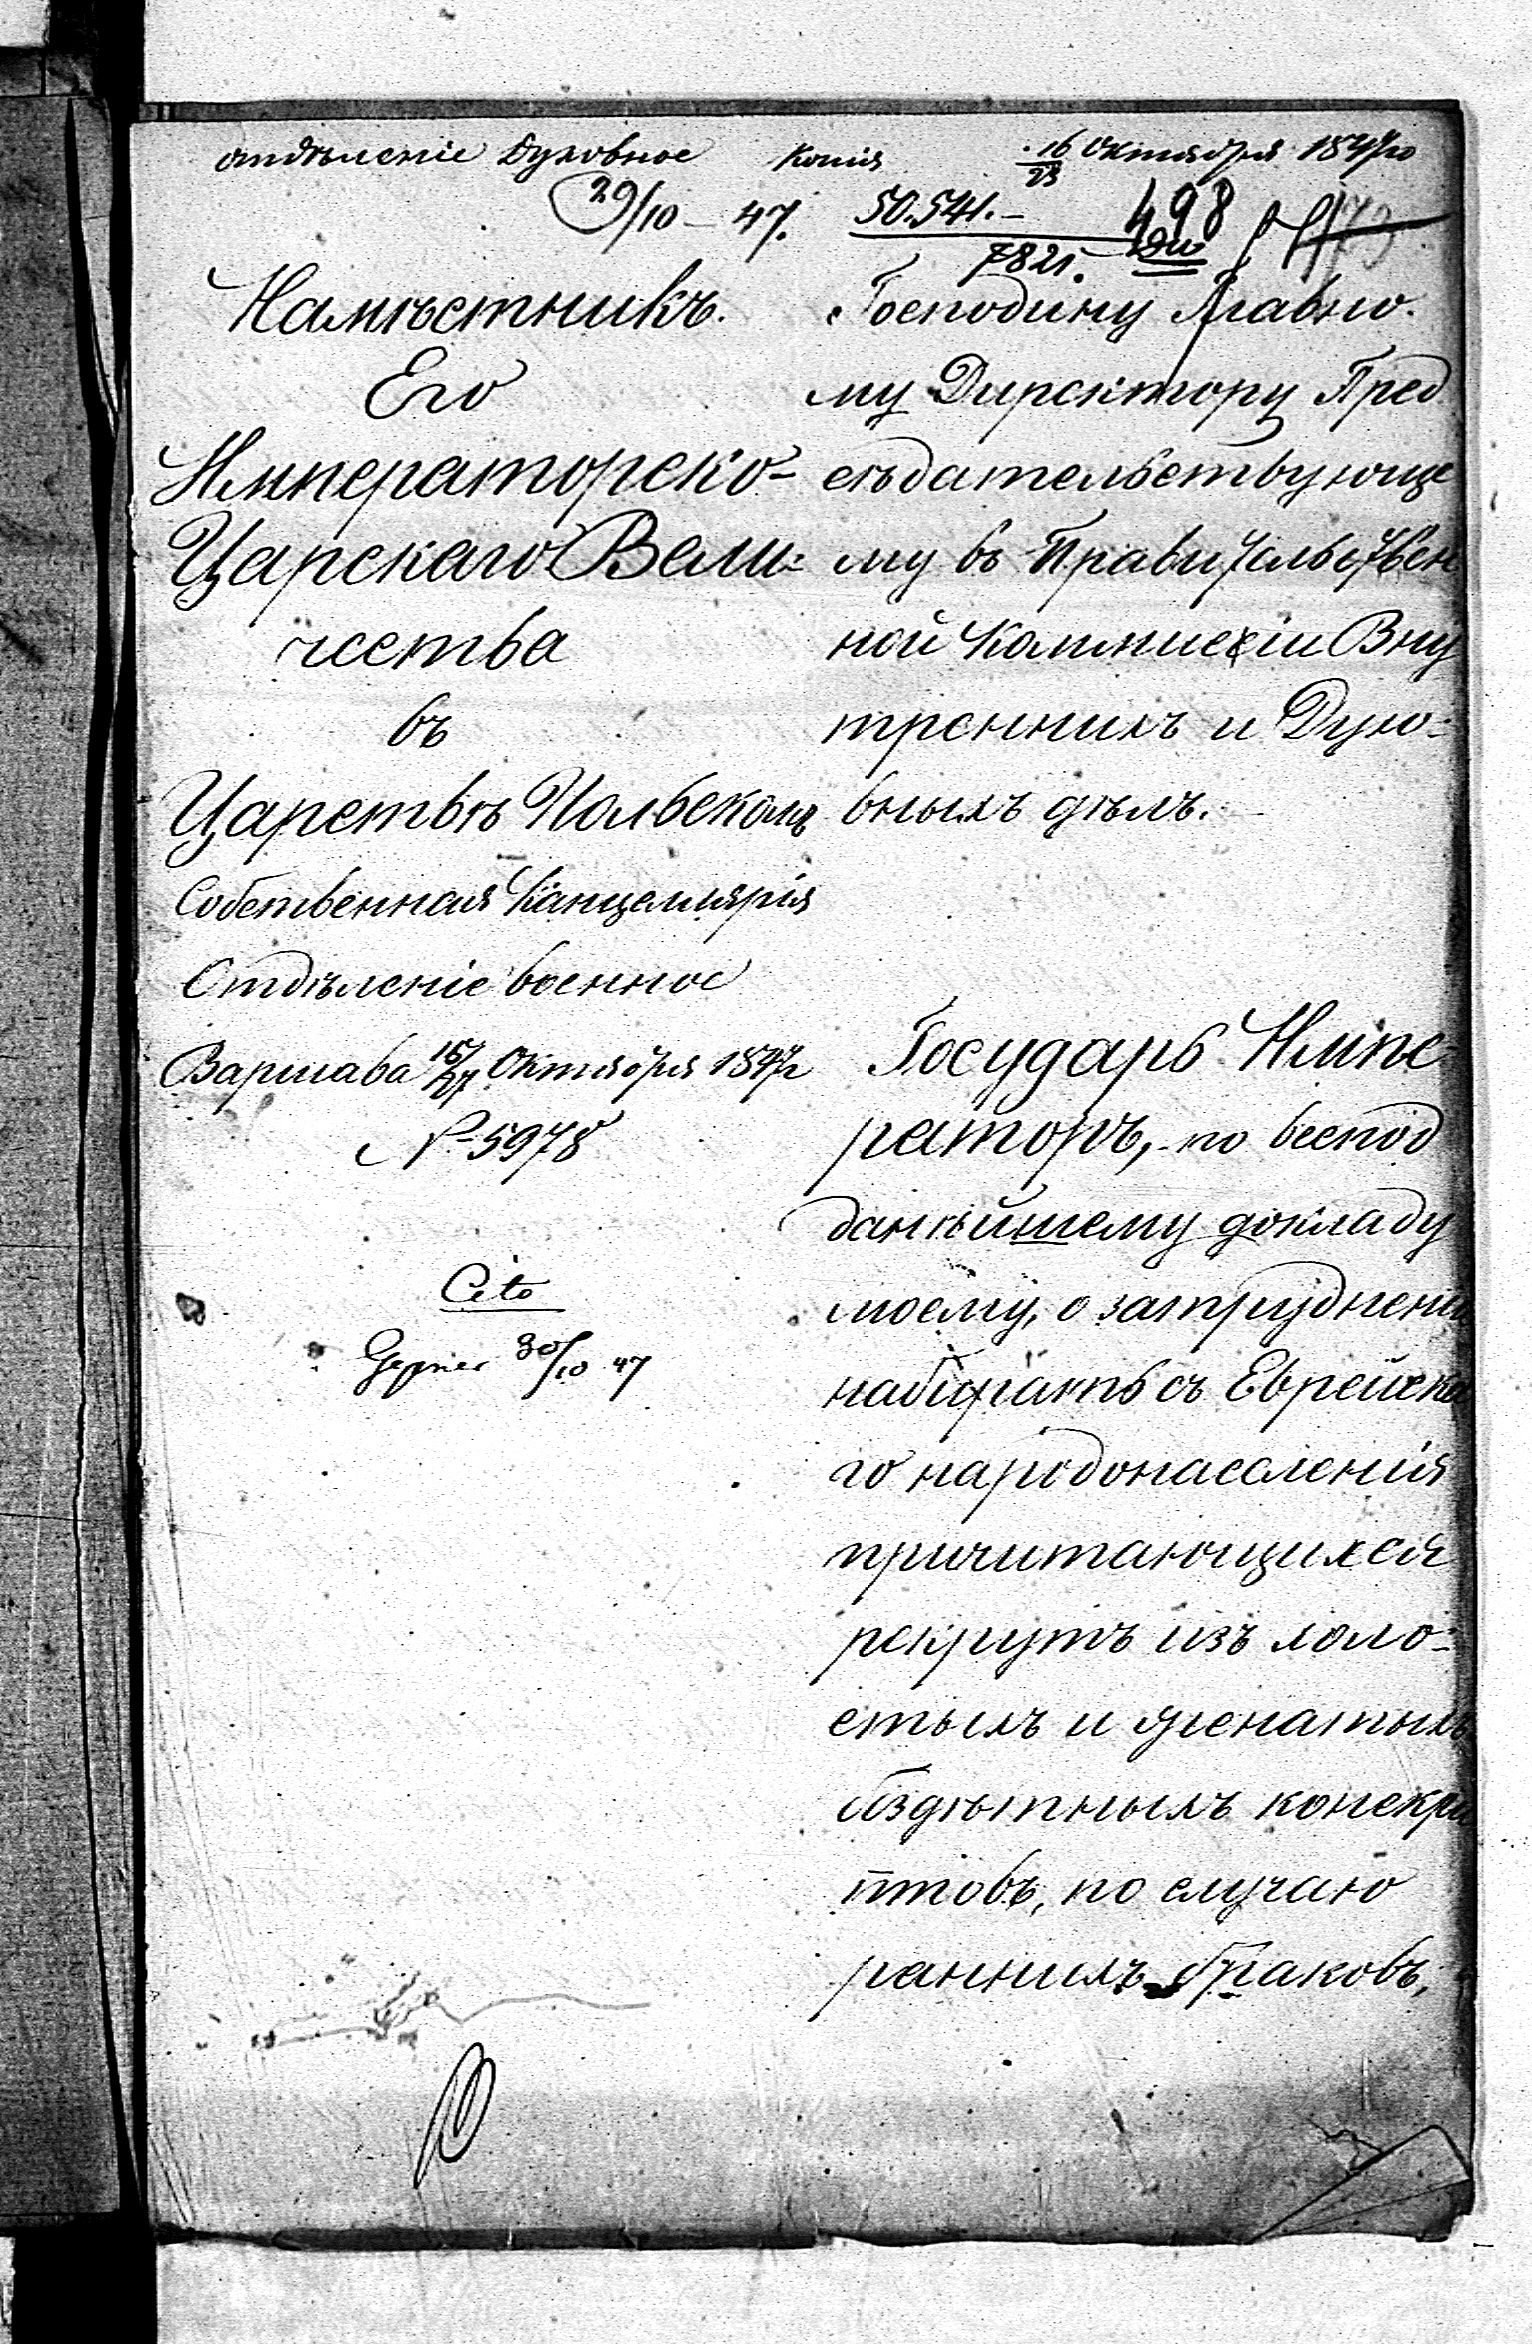 Отдѣленіе Духовное Копія 16/28 Октября 1847го
29/10 – 47. 50.541. – 498
7821.
Намѣстникъ.
Его
Императорско-
Царскаго Вели-
чества
въ
Царствѣ Польскомъ
Собственная Канцелярія
Отдѣленіе военное
Варшава 15/27 Октября 1847г
№ 5978
Cito
30/10 47
Господину Главно-
му Директору Пред
сѣдательствующе
му въ Правительствен
ной Коммисіи Вну
тренихъ и Духо-
вныхъ дѣлъ.
Государь Импе
раторъ, по всепод
даннѣйшему докладу
моему, о затрудненіи
набирать съ Еврейска
го народонаселенія
причитающихся
рекрутъ изъ холо-
стыхъ и женатыхъ
бездѣтныхъ конскри
птовъ, по случаю
раннихъ браковъ,